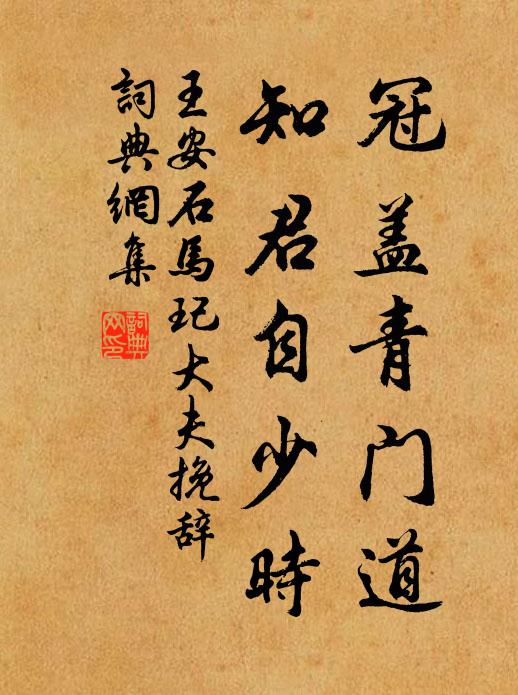 冠盖青门道
知君自少時
王安石馬玘大夫挽辞
詞典網集
詞典網印